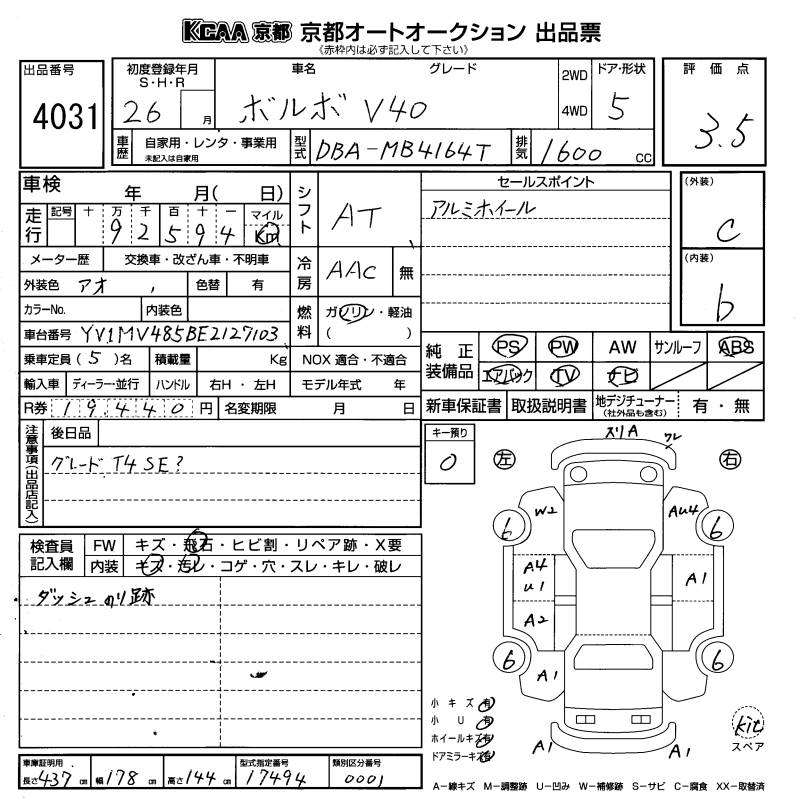 KCAA 京都 京都オートオークション 出品票
《赤枠内は必ず記入して下さい》
出品番号
4031
初度登録年月
S・H・R
26 月
車名 グレード
ボルボ V40
2WD
4WD
ドア・形状
5
評価点
3.5
車歴
自家用・レンタ・事業用
未記入は自家用
型式
DBA-MB4164T
排気
1600 cc
車検 年 月( 日)
走行
記号 十 万 千 百 十 一 マイル
9 2 5 9 4 Km
メーター歴 交換車・改ざん車・不明車
外装色 アオ 色替 有
カラーNo. 内装色
車台番号 YV1MV485BE2127103
乗車定員(5)名 積載量 Kg
輸入車 ディーラー・並行 ハンドル 右H・左H
R券 19,440 円 名変期限 月 日
シフト AT
冷房 AAC 無
燃料 ガソリン・軽油
( )
NOX 適合・不適合
モデル年式 年
セールスポイント
アルミホイール
(外装)
C
(内装)
b
純正装備品
PS PW AW サンルーフ ABS
エアバック TV ナビ
新車保証書 取扱説明書 地デジチューナー
(社外品も含む)
有・無
注意事項(出品店記入)
後日品
グレード T4 SE?
キー預り
0
左
右
ズリA
ワレ
W2
AU4
6
6
A4
U1
A1
A2
6
6
A1
A1
A1
検査員記入欄
FW キズ・飛石・ヒビ割・リペア跡・X要
内装 キズ・汚レ・コゲ・穴・スレ・キレ・破レ
ダッシュ のり跡
小キズ 有
小U 有
ホイールキズ 有
ドアミラーキズ 有
kit
スペア
車庫証明用
長さ 437 cm 幅 178 cm 高さ 144 cm
型式指定番号
17494
類別区分番号
0001
A−線キズ M−調整跡 U−凹み W−補修跡 S−サビ C−腐食 XX−取替済